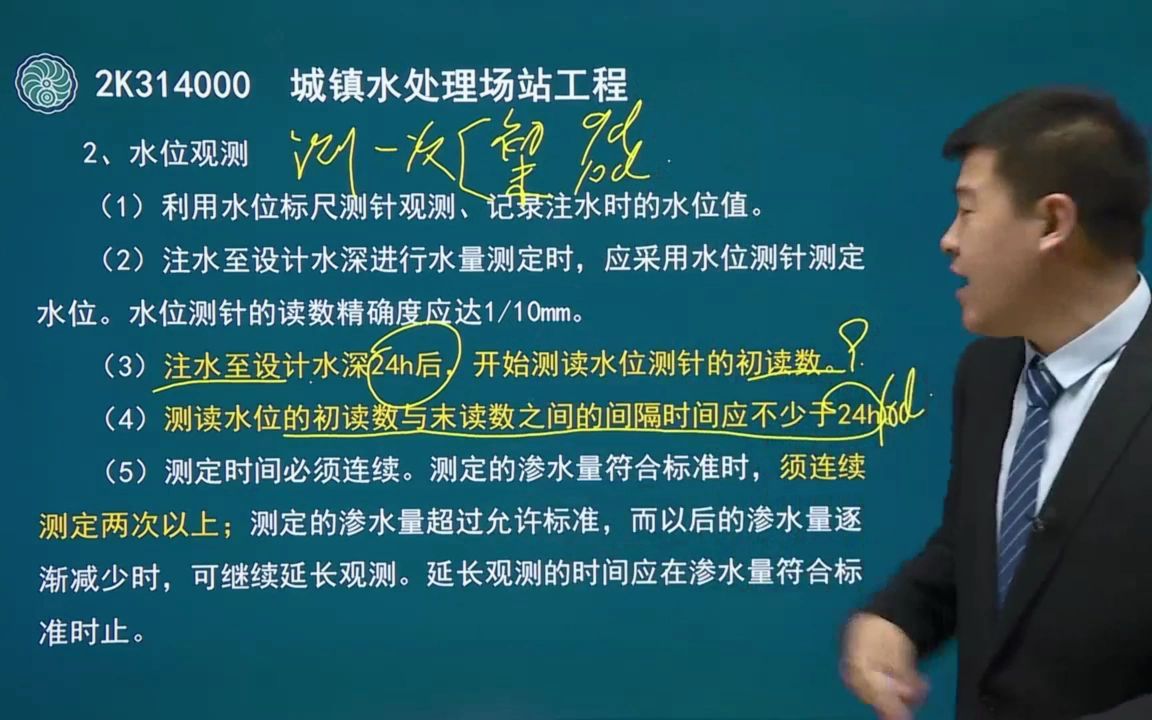 2K314000 城镇水处理场站工程
2、水位观测 测一次 初 9d
末 10d
（1）利用水位标尺测针观测、记录注水时的水位值。
（2）注水至设计水深进行水量测定时，应采用水位测针测定
水位。水位测针的读数精确度应达1/10mm。
（3）注水至设计水深24h后，开始测读水位测针的初读数。
（4）测读水位的初读数与末读数之间的间隔时间应不少于24h
（5）测定时间必须连续。测定的渗水量符合标准时，须连续
测定两次以上；测定的渗水量超过允许标准，而以后的渗水量逐
渐减少时，可继续延长观测。延长观测的时间应在渗水量符合标
准时止。